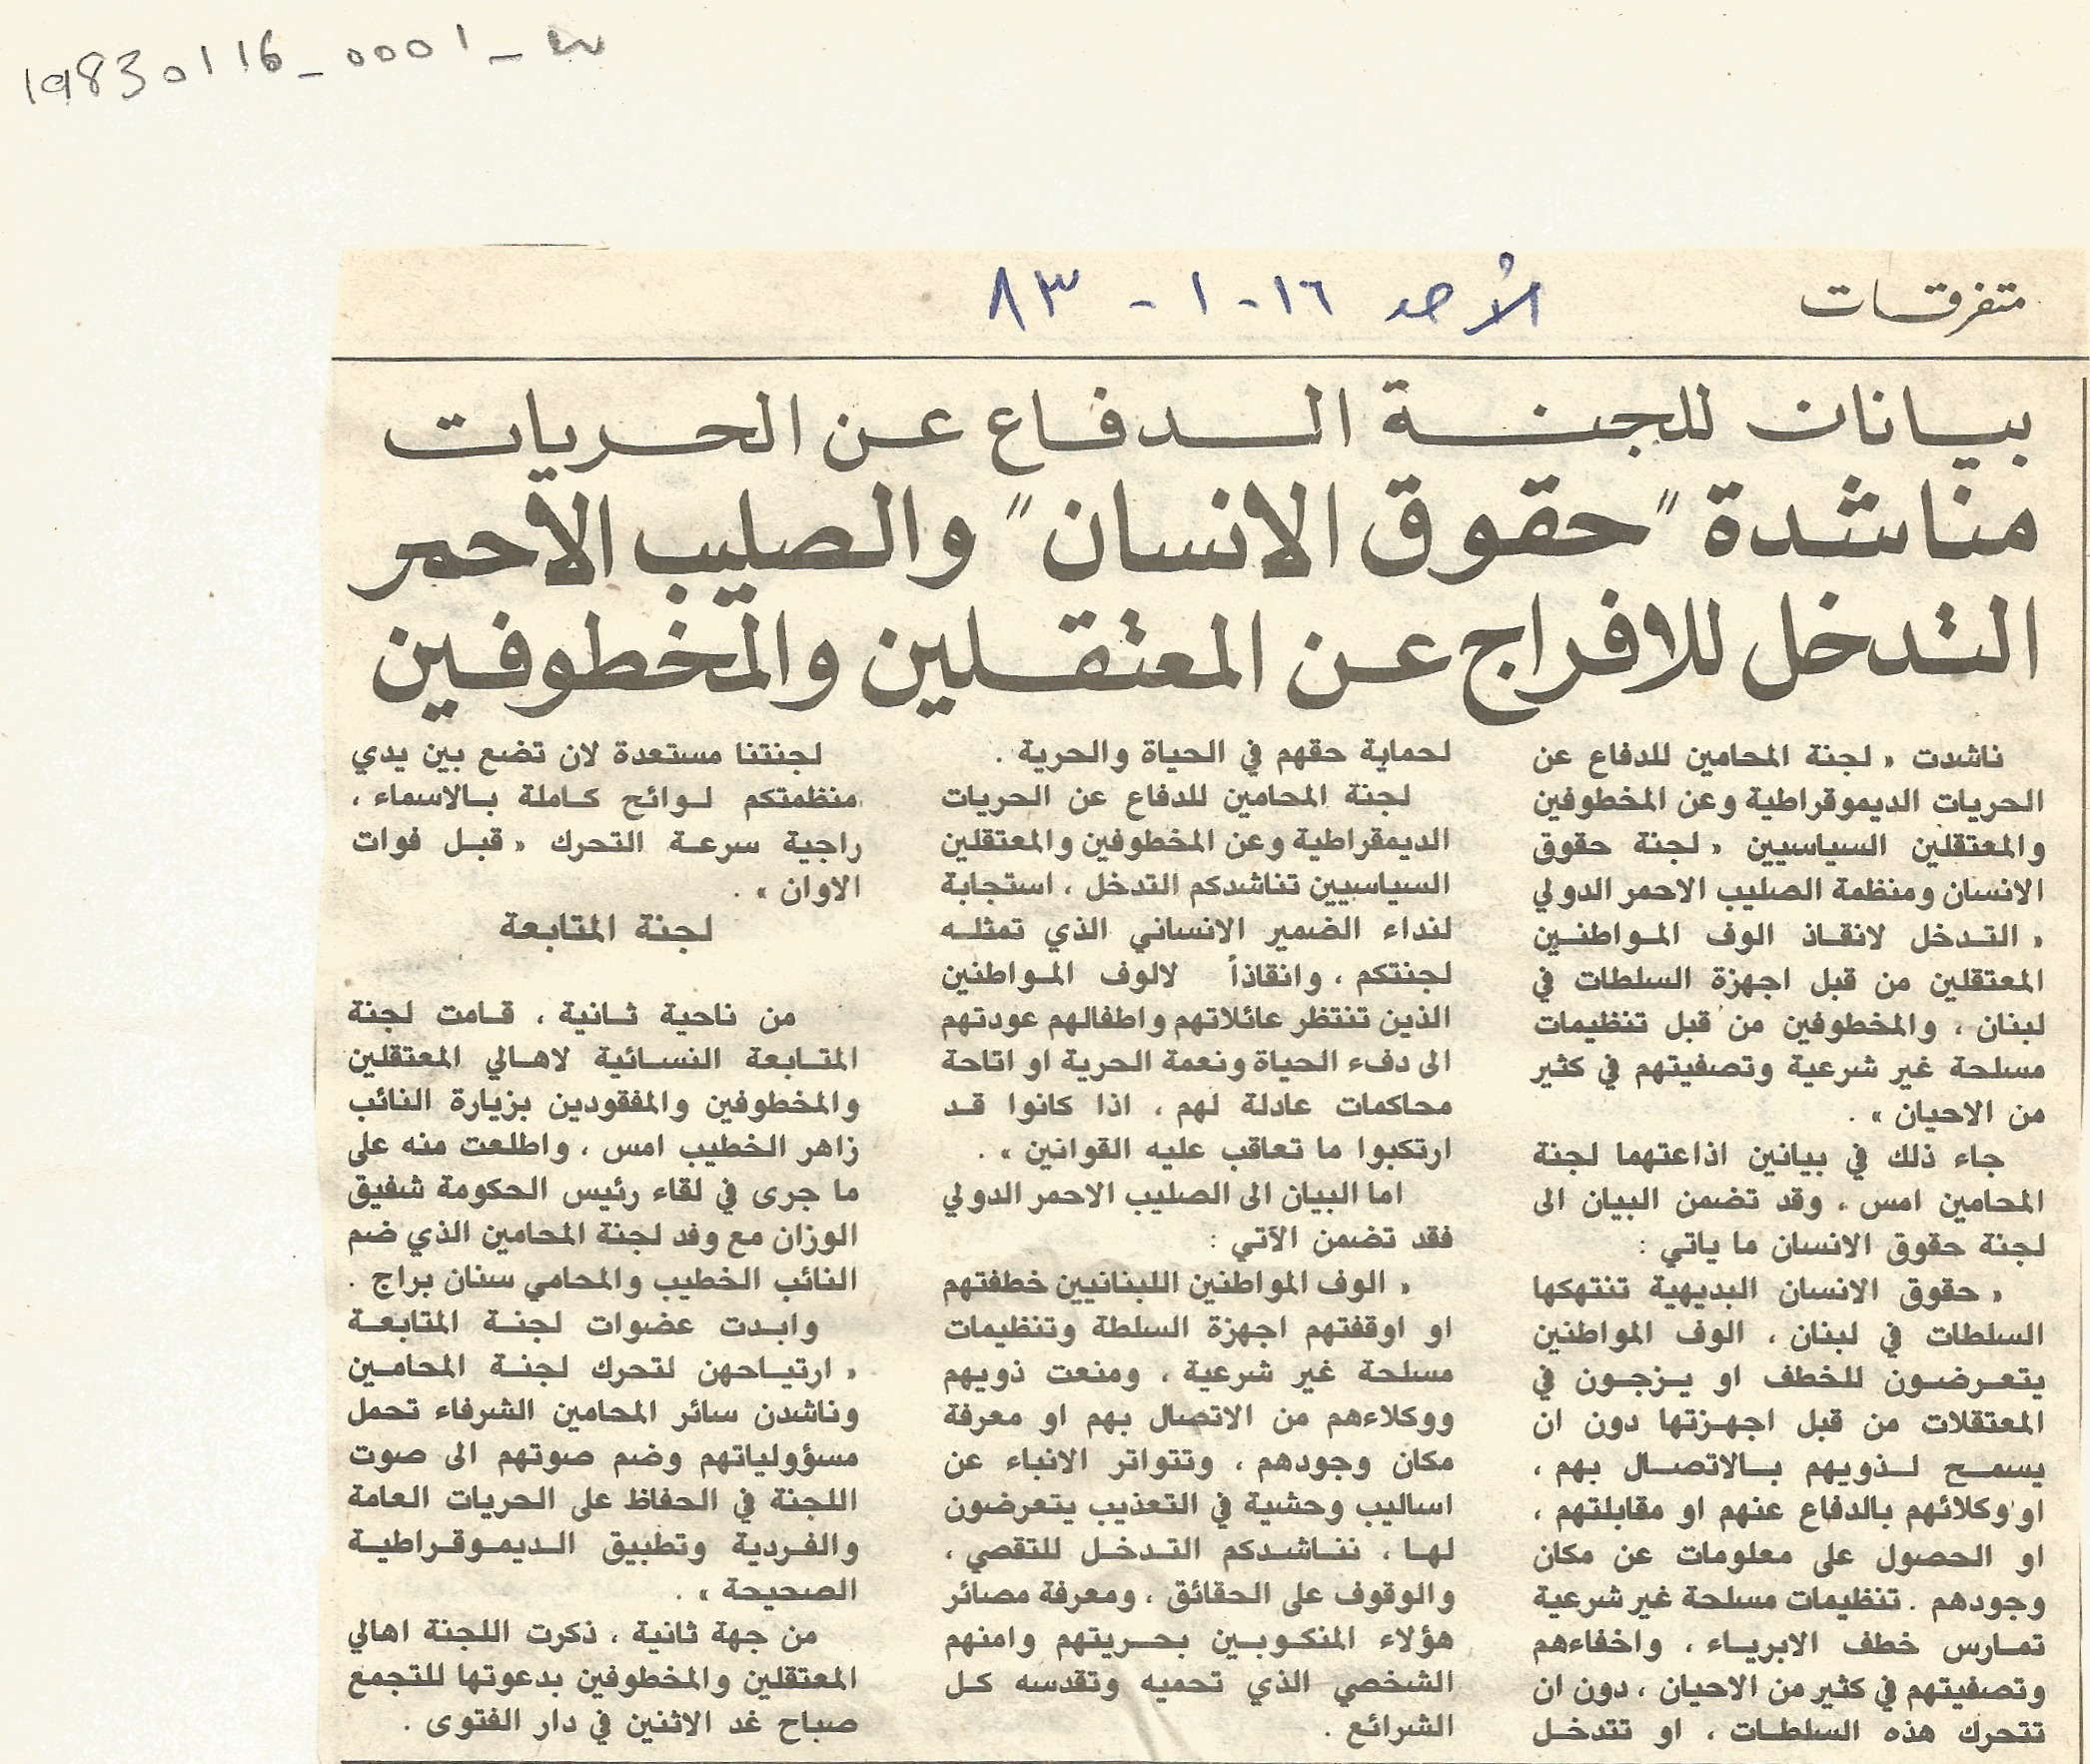 19830116_0001_س
متفرقات
الأحد ١٦-١-٨٣
بيانات للجنة الدفاع عن الحريات
مناشدة "حقوق الانسان" والصليب الاحمر
التدخل للافراج عن المعتقلين والمخطوفين
ناشدت « لجنة المحامين للدفاع عن
الحريات الديموقراطية وعن المخطوفين
والمعتقلين السياسيين » لجنة حقوق
الانسان ومنظمة الصليب الاحمر الدولي
« التدخل لانقاذ الوف المواطنين
المعتقلين من قبل اجهزة السلطات في
لبنان ، والمخطوفين من قبل تنظيمات
مسلحة غير شرعية وتصفيتهم في كثير
من الاحيان » .
جاء ذلك في بيانين اذاعتهما لجنة
المحامين امس ، وقد تضمن البيان الى
لجنة حقوق الانسان ما ياتي :
« حقوق الانسان البديهية تنتهكها
السلطات في لبنان ، الوف المواطنين
يتعرضون للخطف او يزجون في
المعتقلات من قبل اجهزتها دون ان
يسمح لذويهم بالاتصال بهم ،
او وكلائهم بالدفاع عنهم او مقابلتهم ،
او الحصول على معلومات عن مكان
وجودهم . تنظيمات مسلحة غير شرعية
تمارس خطف الابرياء ، واخفاءهم
وتصفيتهم في كثير من الاحيان ، دون ان
تتحرك هذه السلطات ، او تتدخل
لحماية حقهم في الحياة والحرية .
لجنة المحامين للدفاع عن الحريات
الديمقراطية وعن المخطوفين والمعتقلين
السياسيين تناشدكم التدخل ، استجابة
لنداء الضمير الانساني الذي تمثله
لجنتكم ، وانقاذاً لالوف المواطنين
الذين تنتظر عائلاتهم واطفالهم عودتهم
الى دفء الحياة ونعمة الحرية او اتاحة
محاكمات عادلة لهم ، اذا كانوا قد
ارتكبوا ما تعاقب عليه القوانين » .
اما البيان الى الصليب الاحمر الدولي
فقد تضمن الآتي :
« الوف المواطنين اللبنانيين خطفتهم
او اوقفتهم اجهزة السلطة وتنظيمات
مسلحة غير شرعية ، ومنعت ذويهم
ووكلاءهم من الاتصال بهم او معرفة
مكان وجودهم ، وتتواتر الانباء عن
اساليب وحشية في التعذيب يتعرضون
لها ، نناشدكم التدخل للتقصي ،
والوقوف على الحقائق ، ومعرفة مصائر
هؤلاء المنكوبين بحريتهم وامنهم
الشخصي الذي تحميه وتقدسه كل
الشرائع .
لجنتنا مستعدة لان تضع بين يدي
منظمتكم لوائح كاملة بالاسماء ،
راجية سرعة التحرك « قبل فوات
الاوان » .
لجنة المتابعة
من ناحية ثانية ، قامت لجنة
المتابعة النسائية لاهالي المعتقلين
والمخطوفين والمفقودين بزيارة النائب
زاهر الخطيب امس ، واطلعت منه على
ما جرى في لقاء رئيس الحكومة شفيق
الوزان مع وفد لجنة المحامين الذي ضم
النائب الخطيب والمحامي سنان براج .
وابدت عضوات لجنة المتابعة
« ارتياحهن لتحرك لجنة المحامين
وناشدن سائر المحامين الشرفاء تحمل
مسؤولياتهم وضم صوتهم الى صوت
اللجنة في الحفاظ على الحريات العامة
والفردية وتطبيق الديموقراطية
الصحيحة » .
من جهة ثانية ، ذكرت اللجنة اهالي
المعتقلين والمخطوفين بدعوتها للتجمع
صباح غد الاثنين في دار الفتوى .